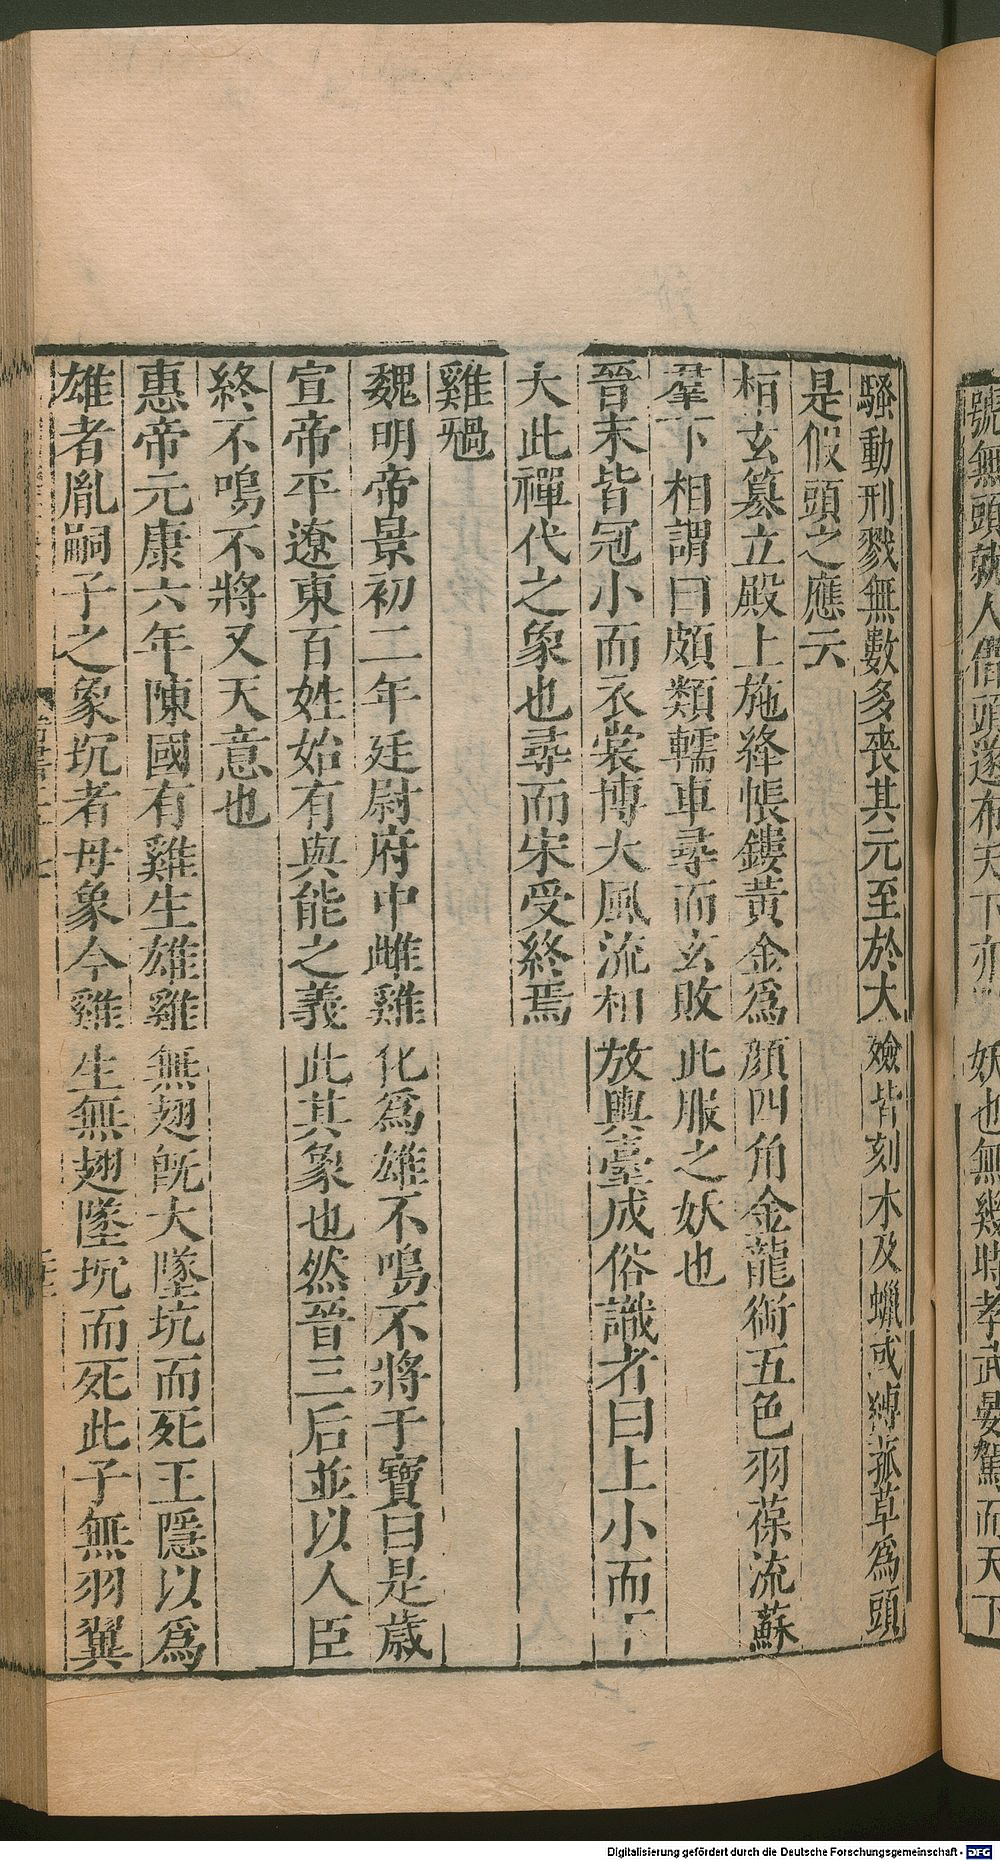 號無頭就人借頭遂布天下亦
妖也無幾時孝武晏駕而天下
騷動刑戮無數多喪其元至於大殮皆刻木及蠟或縛菰草爲頭
是假頭之應云
桓玄篡立殿上施絳帳鏤黃金爲顏四角金龍銜五色羽葆流蘇
羣下相謂曰頗類轜車尋而玄敗此服之妖也
晉末皆冠小而衣裳博大風流相放輿臺成俗識者曰上小而下
大此禪代之象也尋而宋受終焉
雞旤
魏明帝景初二年廷尉府中雌雞化爲雄不鳴不將干寶曰是歲
宣帝平遼東百姓始有與能之義此其象也然晉三后並以人臣
終不鳴不將又天意也
惠帝元康六年陳國有雞生雄雞無翅旣大墜坑而死王隱以爲
雄者胤嗣子之象坑者母象今雞生無翅墜坑而死此子無羽翼
Digitalisierung gefördert durch die Deutsche Forschungsgemeinschaft - DFG